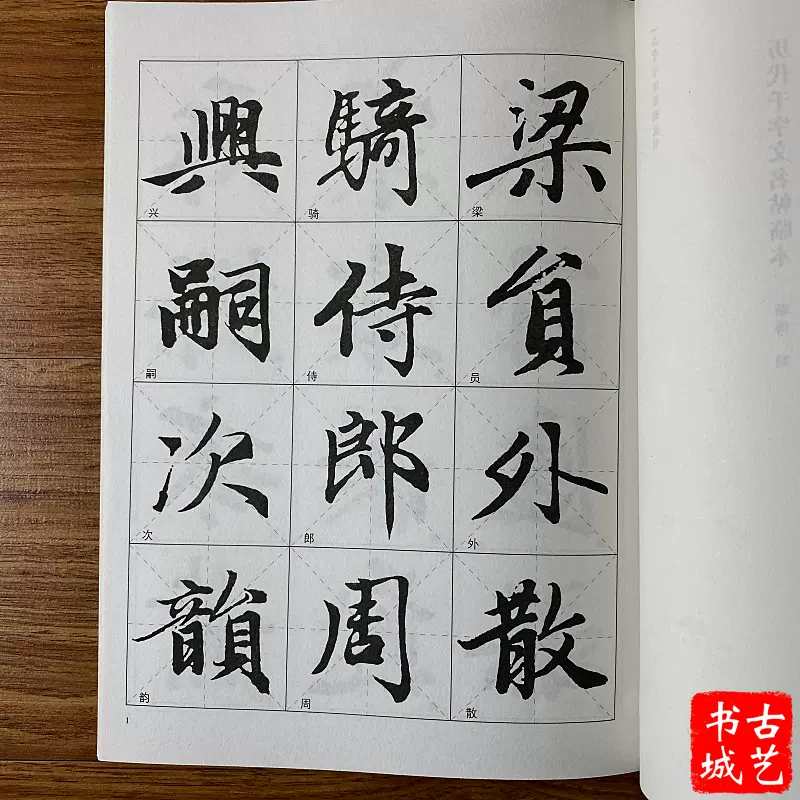 梁員外散
梁 员 外 散
騎侍郎周
骑 侍 郎 周
興嗣次韻
兴 嗣 次 韵
1
历代千字文名帖临本
古艺
书城